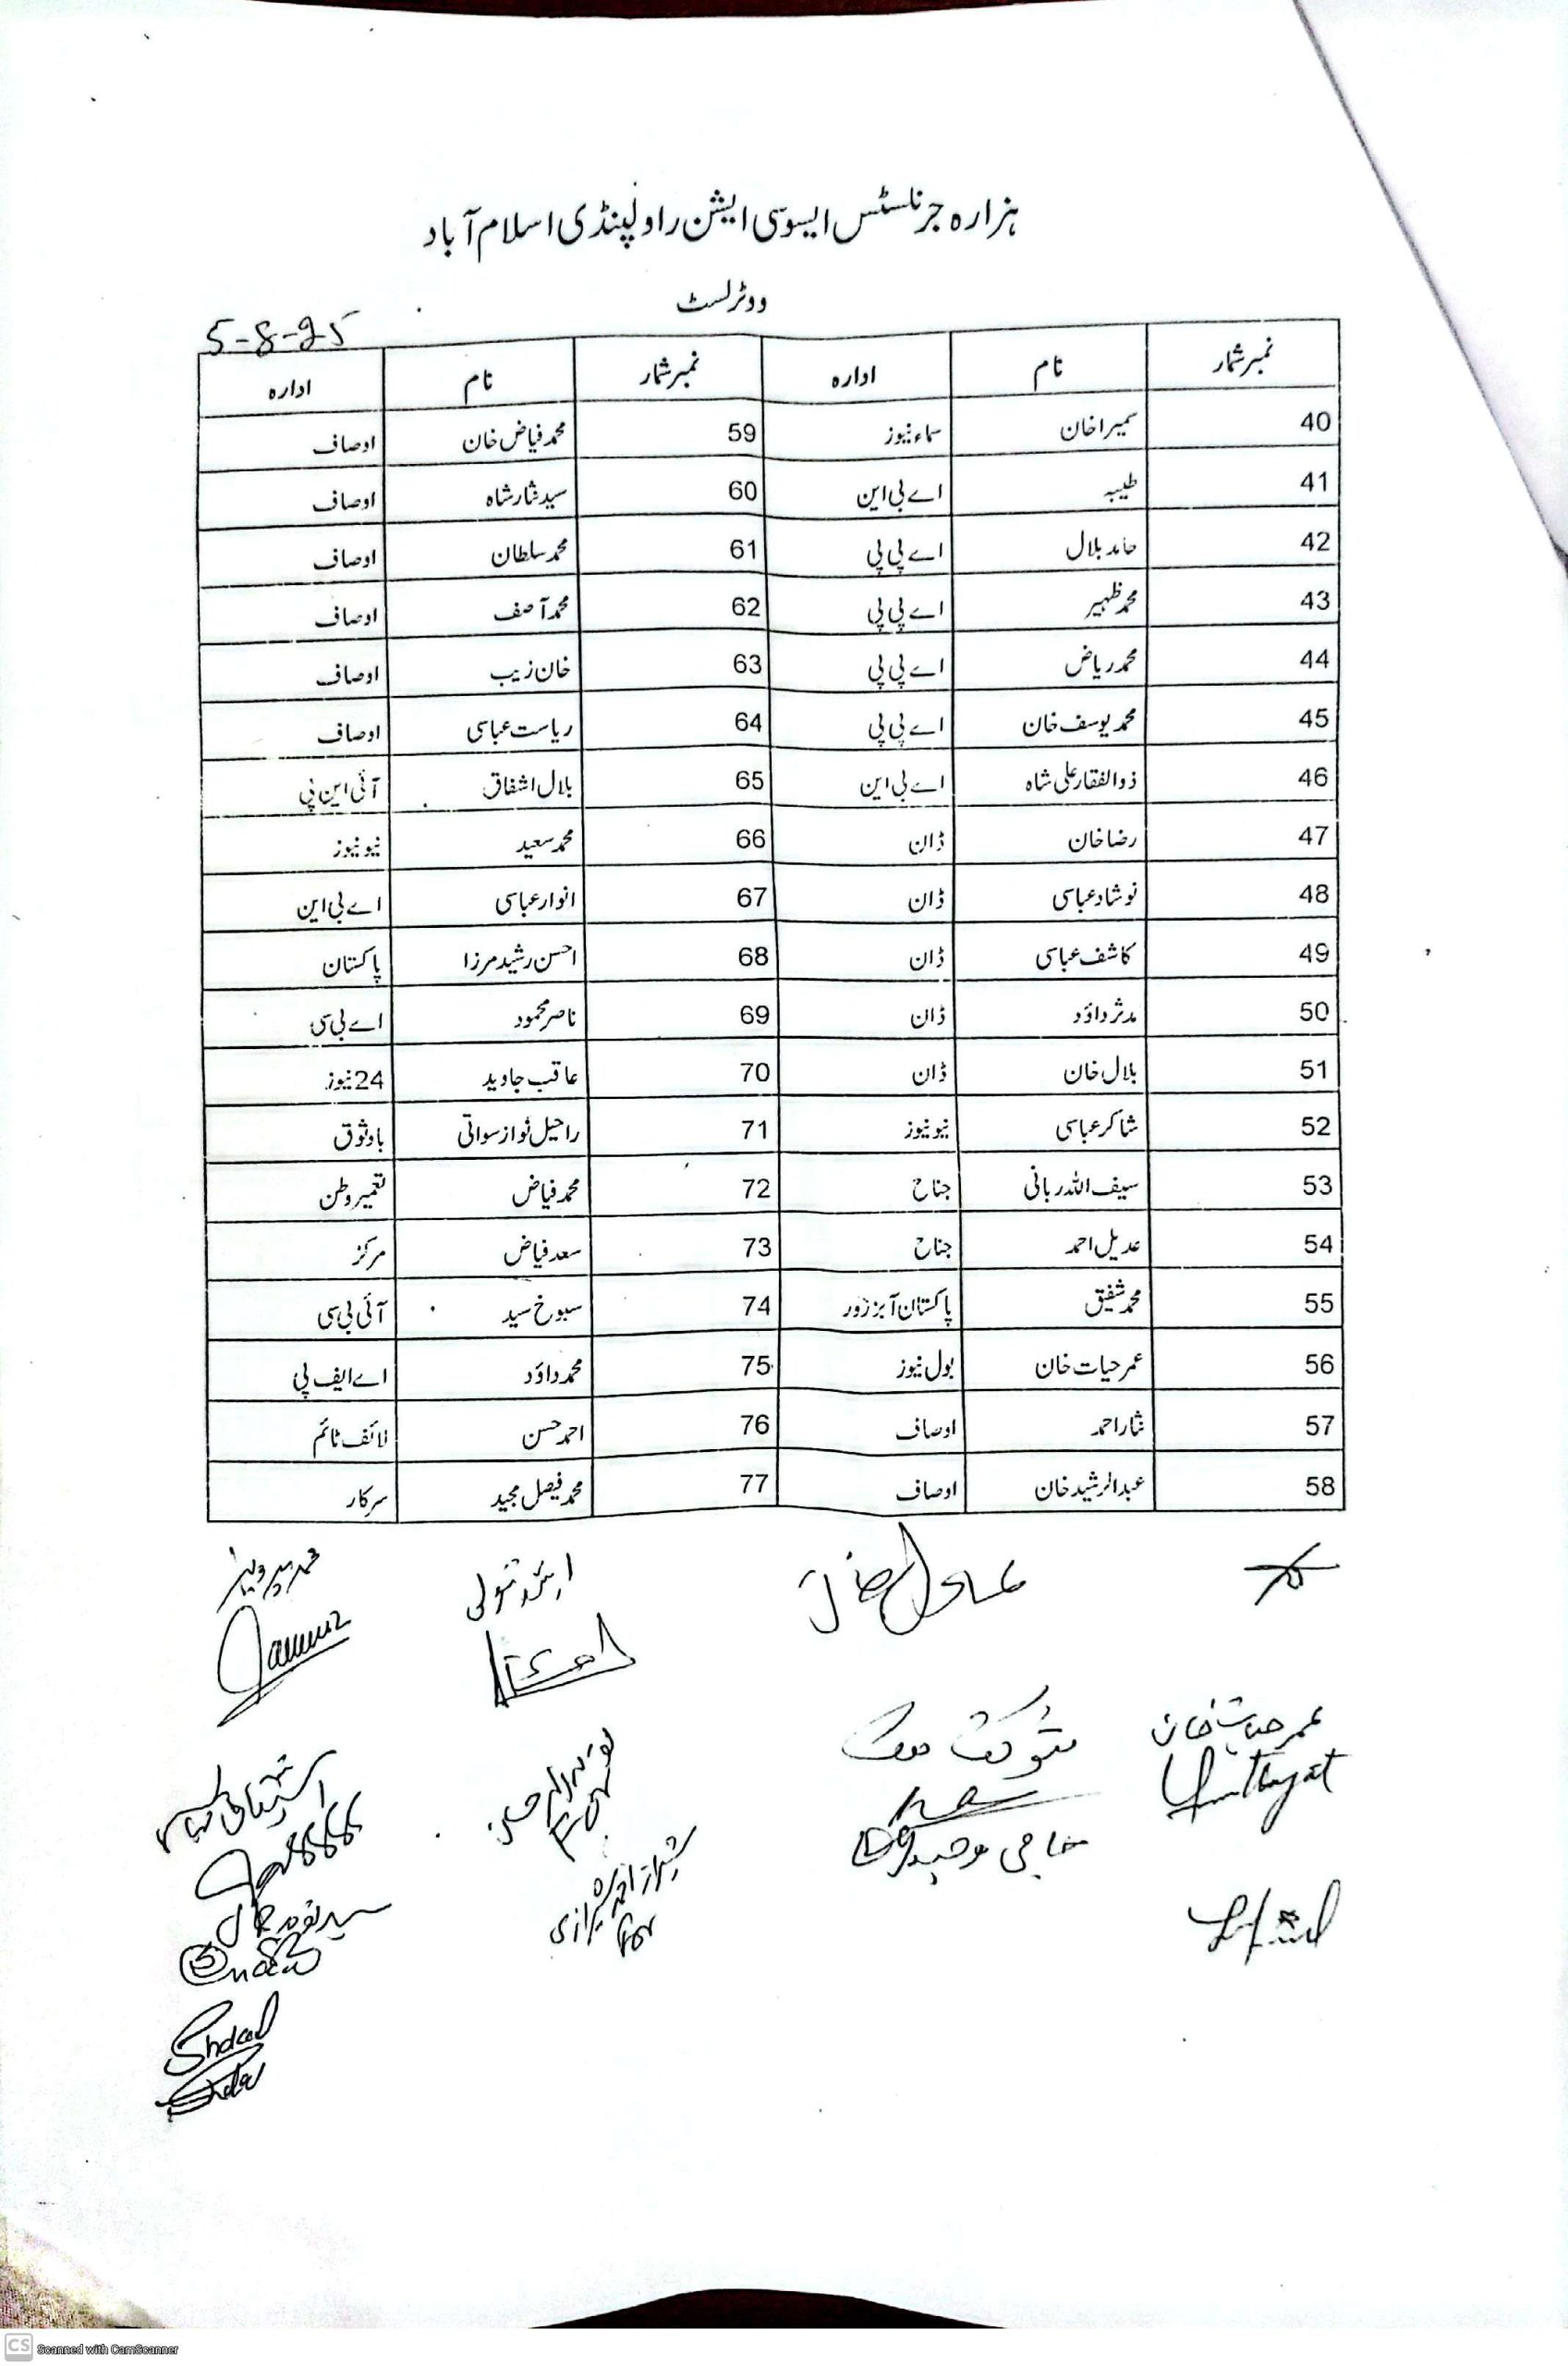 ہزارہ جرنلسٹس ایسوسی ایشن راولپنڈی اسلام آباد
ووٹر لسٹ
5-8-25
نمبر شمار نام ادارہ نمبر شمار نام ادارہ
40 سمیرا خان سماء نیوز 59 محمد فیاض خان اوصاف
41 طیبہ اے بی این 60 سید نثار شاہ اوصاف
42 حامد بلال اے پی پی 61 محمد سلطان اوصاف
43 محمد ظہیر اے پی پی 62 محمد آصف اوصاف
44 محمد ریاض اے پی پی 63 خان زیب اوصاف
45 محمد یوسف خان اے پی پی 64 ریاست عباسی اوصاف
46 ذوالفقار علی شاہ اے بی این 65 بلال اشفاق آئی این پی
47 رضا خان ڈان 66 محمد سعید نیو نیوز
48 نوشاد عباسی ڈان 67 انوار عباسی اے بی این
49 کاشف عباسی ڈان 68 احسن رشید مرزا پاکستان
50 مدثر داؤد ڈان 69 ناصر محمود اے بی سی
51 بلال خان ڈان 70 عاقب جاوید 24 نیوز
52 شاکر عباسی نیو نیوز 71 راحیل نواز سواتی باوثوق
53 سیف اللہ ربانی جناح 72 محمد فیاض تعمیر وطن
54 عدیل احمد جناح 73 سعد فیاض مرکز
55 محمد شفیق پاکستان آبزرور 74 سبوخ سید آئی بی سی
56 عمر حیات خان بول نیوز 75 محمد داؤد اے ایف پی
57 نثار احمد اوصاف 76 احمد حسن لائف ٹائم
58 عبدالرشید خان اوصاف 77 محمد فیصل مجید سرکار
محمد پرویز
عمر حیات خان
شوکت ملک
حاجی وحید
For
شیراز احمد شیرازی
For
CS Scanned with CamScanner